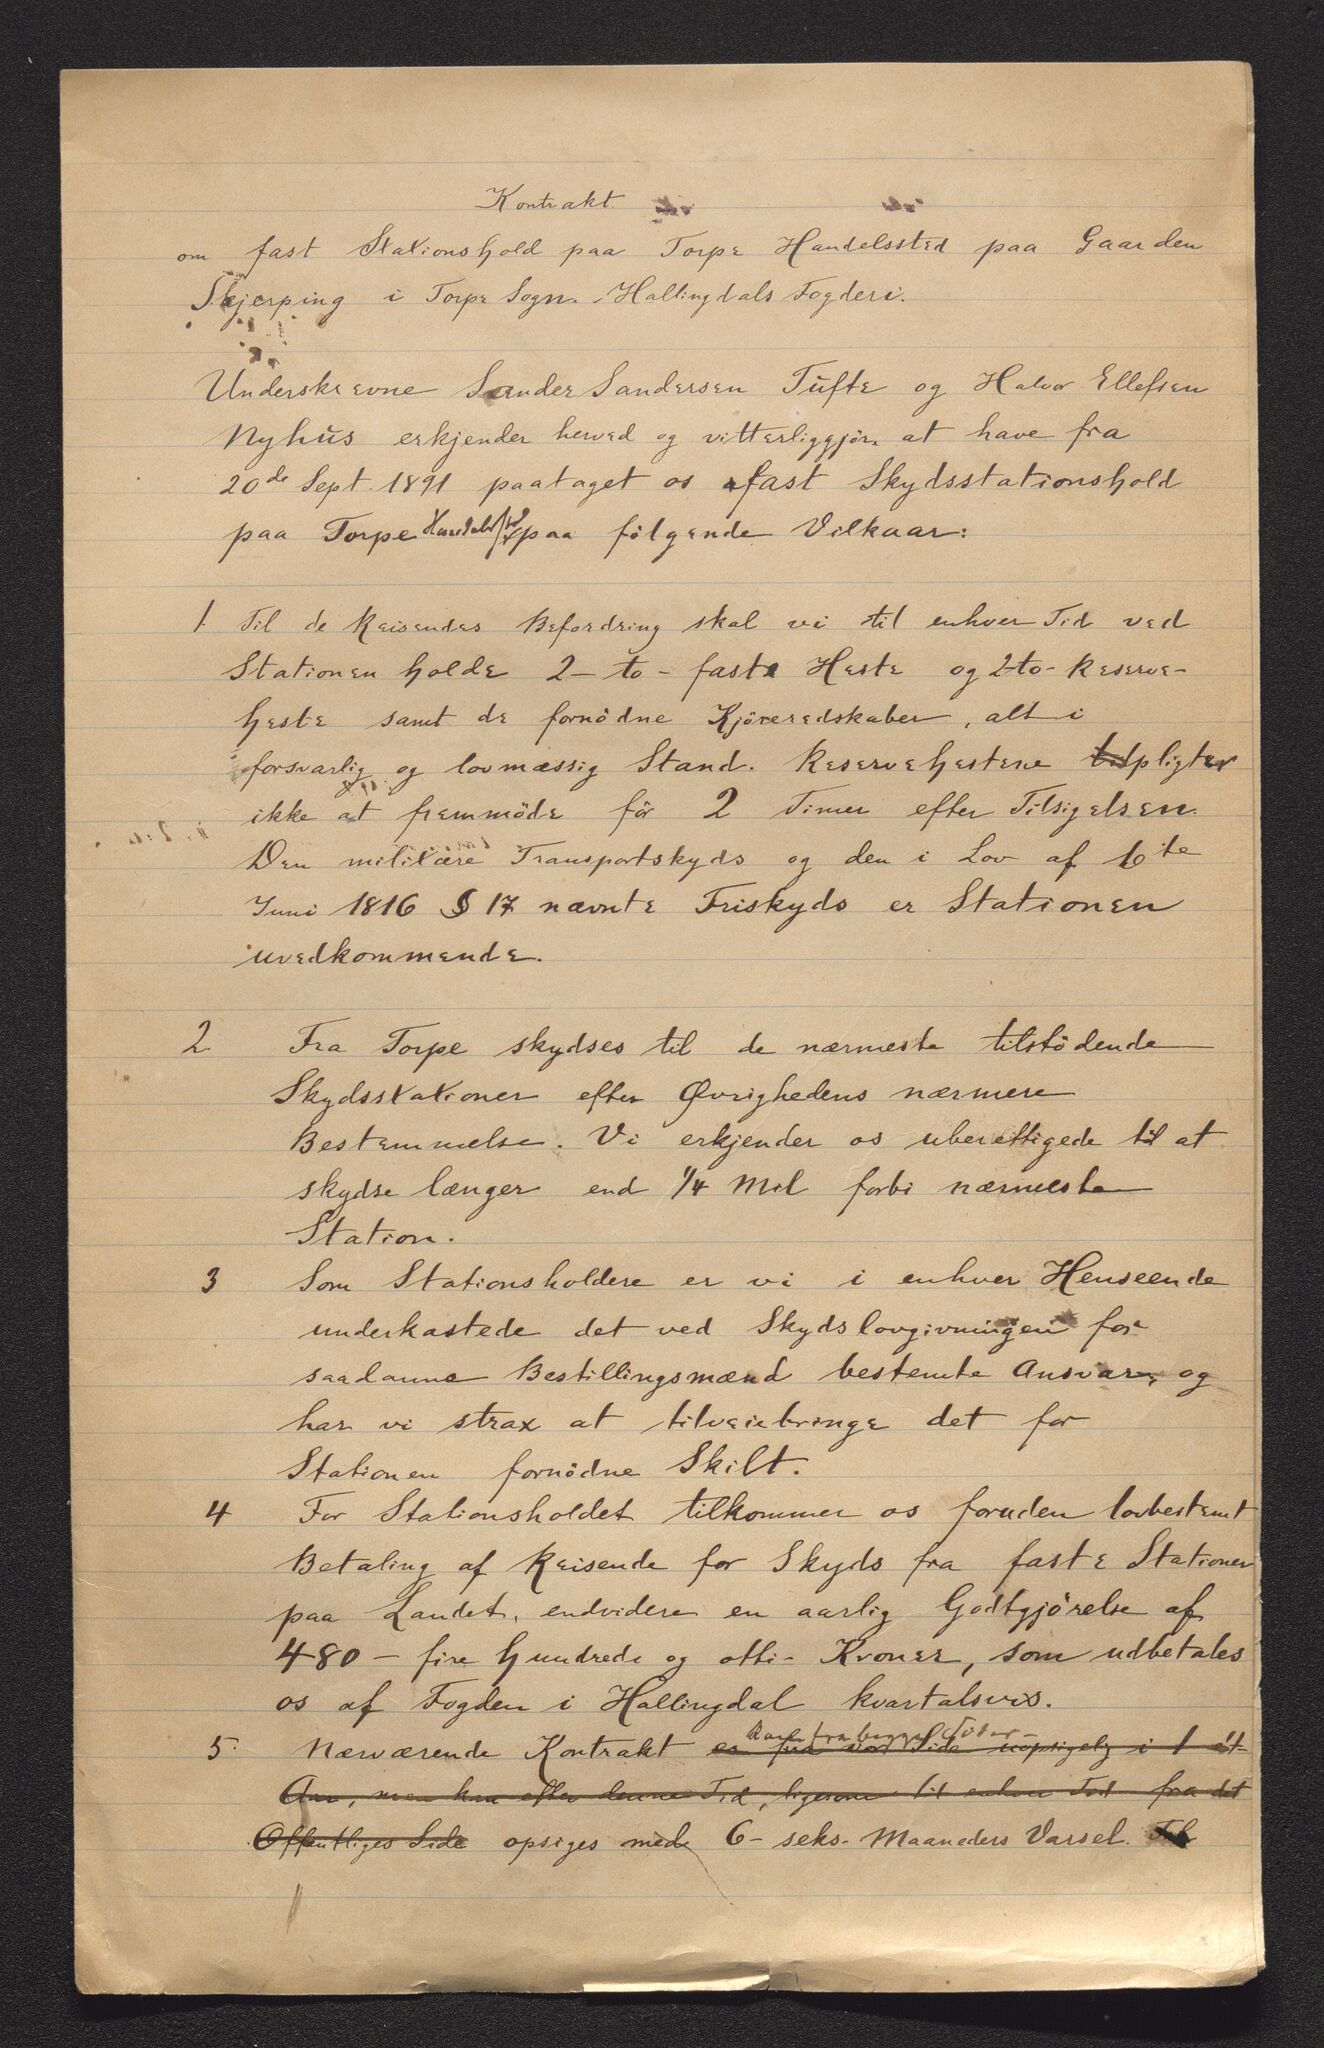 Kontrakt
om fast Stationshold paa Torpe Handelssted paa Gaarden
Skjerping i Torpe Sogn. Hallingdals Fogderi.
Underskrevne Sander Sandersen Tufte og Halvor Ellefsen
Nyhus erkjender herved og vitterliggjör at have fra
20de Sept. 1891 paataget os fast Skydsstationshold
paa Torpe Handelssted paa fölgende Vilkaar:
1. Til de Reisendes Befordring skal vi til enhver Tid ved
Stationen holde 2 - to - faste Heste og 2 - to - Reserve-
heste samt de fornödne Kjöreredskaber, alt i
forsvarlig og lovmæssig Stand. Reservehestene pligter
ikke at fremmöde för 2 Timer efter Tilsigelsen.
Den militære Transportskyds og den i Lov af 6te
Juni 1816 § 17 nævnte Friskyds er Stationen
uvedkommende.
2. Fra Torpe skydses til de nærmeste tilstödende
Skydsstationer efter Øvrighedens nærmere
Bestemmelse. Vi erkjender os uberettigede til at
skydse længer end 1/4 Mil forbi nærmeste
Station.
3 Som Stationsholdere er vi i enhver Henseende
underkastede det ved Skydslovgivningen for
saadanne Bestillingsmænd bestemte Ansvar, og
har vi strax at tilveiebringe det for
Stationen fornödne Skilt.
4 For Stationsholdet tilkommer os foruden lovbestemt
Betaling af Reisende for Skyds fra faste Stationer
paa Landet, endvidere en aarlig Godtgjörelse af
480 - fire hundrede og otti - Kroner, som udbetales
os af Fogden i Hallingdal kvartalsvis.
kan fra begge Sider
5. Nærværende Kontrakt er fra vor Side uopsigelig i 1 et
Aar, men kan efter denne Tid, ligesom til enhver Tid fra det
Offentliges Side opsiges med 6 - seks - Maaneders Varsel. Til